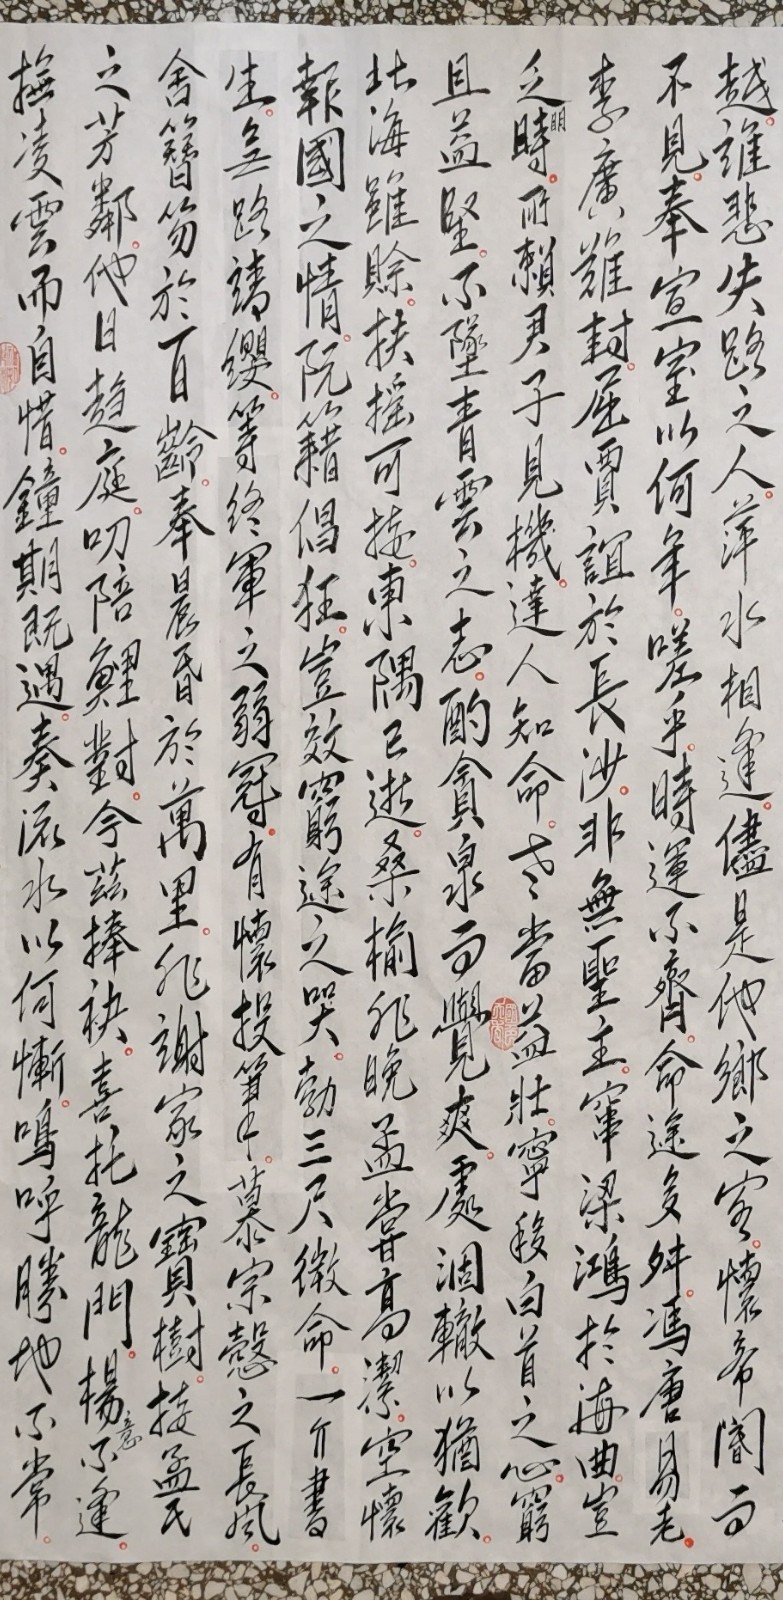 越。誰悲失路之人。萍水相逢。儘是他鄉之客。懷帝閽而
不見。奉宣室以何年。嗟乎。時運不齊。命途多舛。馮唐易老。
李廣難封。屈賈誼於長沙。非無聖主。竄梁鴻於海曲。豈
乏明時。所賴君子見機。達人知命。老當益壯。寧移白首之心。窮
且益堅。不墜青雲之志。酌貪泉而覺爽。處涸轍以猶歡。
北海雖賒。扶搖可接。東隅已逝。桑榆非晚。孟嘗高潔。空懷
報國之情。阮籍倡狂。豈效窮途之哭。勃三尺微命。一介書
生。無路請纓。等終軍之弱冠。有懷投筆。慕宗愨之長風。
舍簪笏於百齡。奉晨昏於萬里。非謝家之寶樹。接孟氏
之芳鄰。他日趨庭。叨陪鯉對。今茲捧袂。喜托龍門。楊意不逢。
撫凌雲而自惜。鐘期既遇。奏流水以何慚。嗚呼勝地不常。